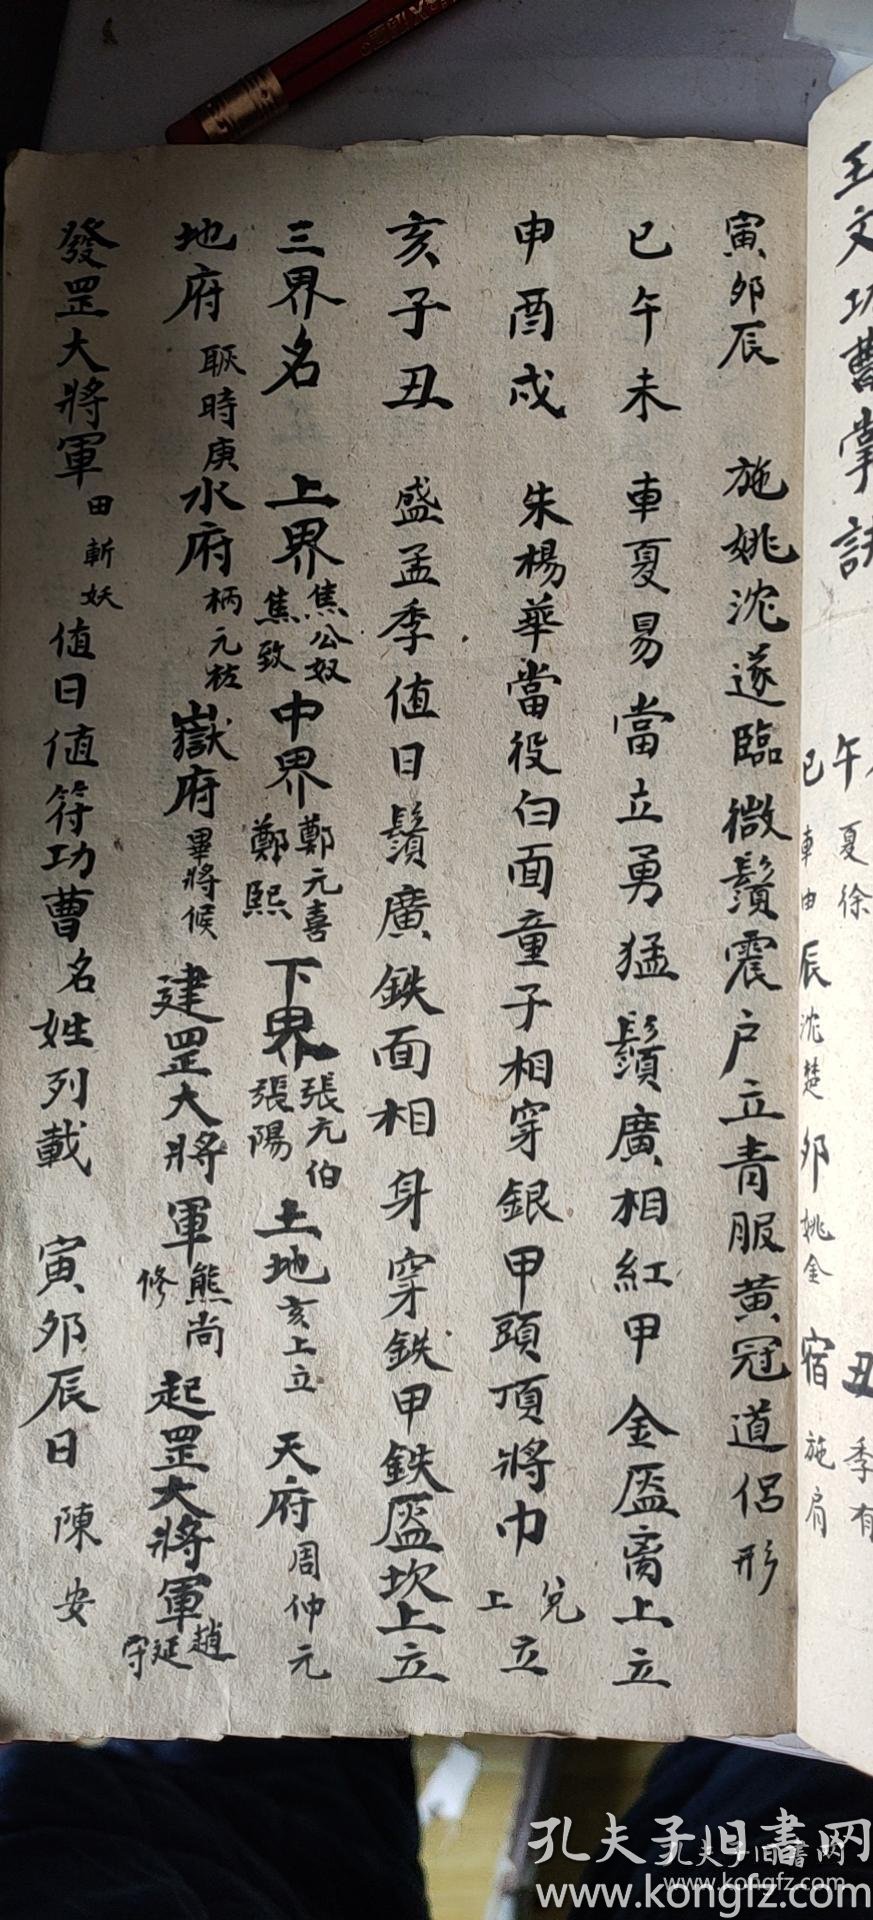 文功曹掌訣
午 夏徐
丑 季有
巳 車由 辰 沈楚 卯 姚金 宿 施肩
寅卯辰 施姚沈遂臨微鬚震户立青服黄冠道侣形
巳午未 車夏易當立勇猛鬚廣相紅甲金盔离上立
申酉戌 朱楊華當役白面童子相穿銀甲頭頂將巾 兑上立
亥子丑 盛孟季值日鬚廣鉄面相身穿鉄甲鉄盔坎上立
三界名 上界 焦公奴 焦致 中界 鄭元喜 鄭熙 下界 張元伯 張陽 土地 亥上立 天府 周仲元
地府 時庚 水府 柄元枝 嶽府 畢將候 建罡大將軍 熊尚修 起罡大將軍 趙延守
發罡大將軍 田斬妖 值日值符功曹名姓列載 寅卯辰日 陳安
孔夫子旧書网
孔夫子旧書网
www.kongfz.com
www.kongfz.com